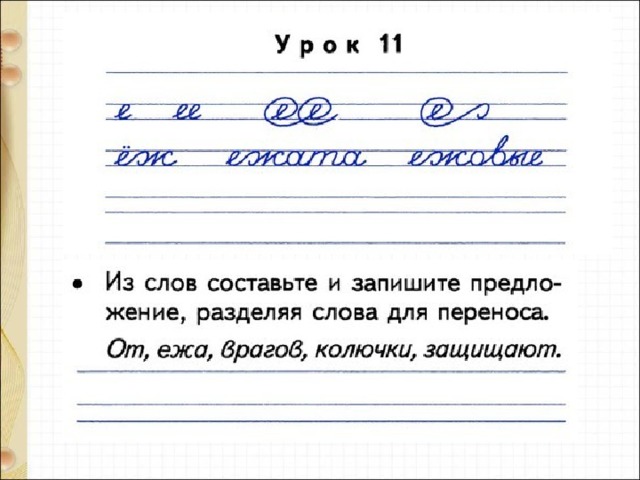 Урок 11
е ее ее е з
ёж ежата ежовые
• Из слов составьте и запишите предло-
жение, разделяя слова для переноса.
От, ежа, врагов, колючки, защищают.